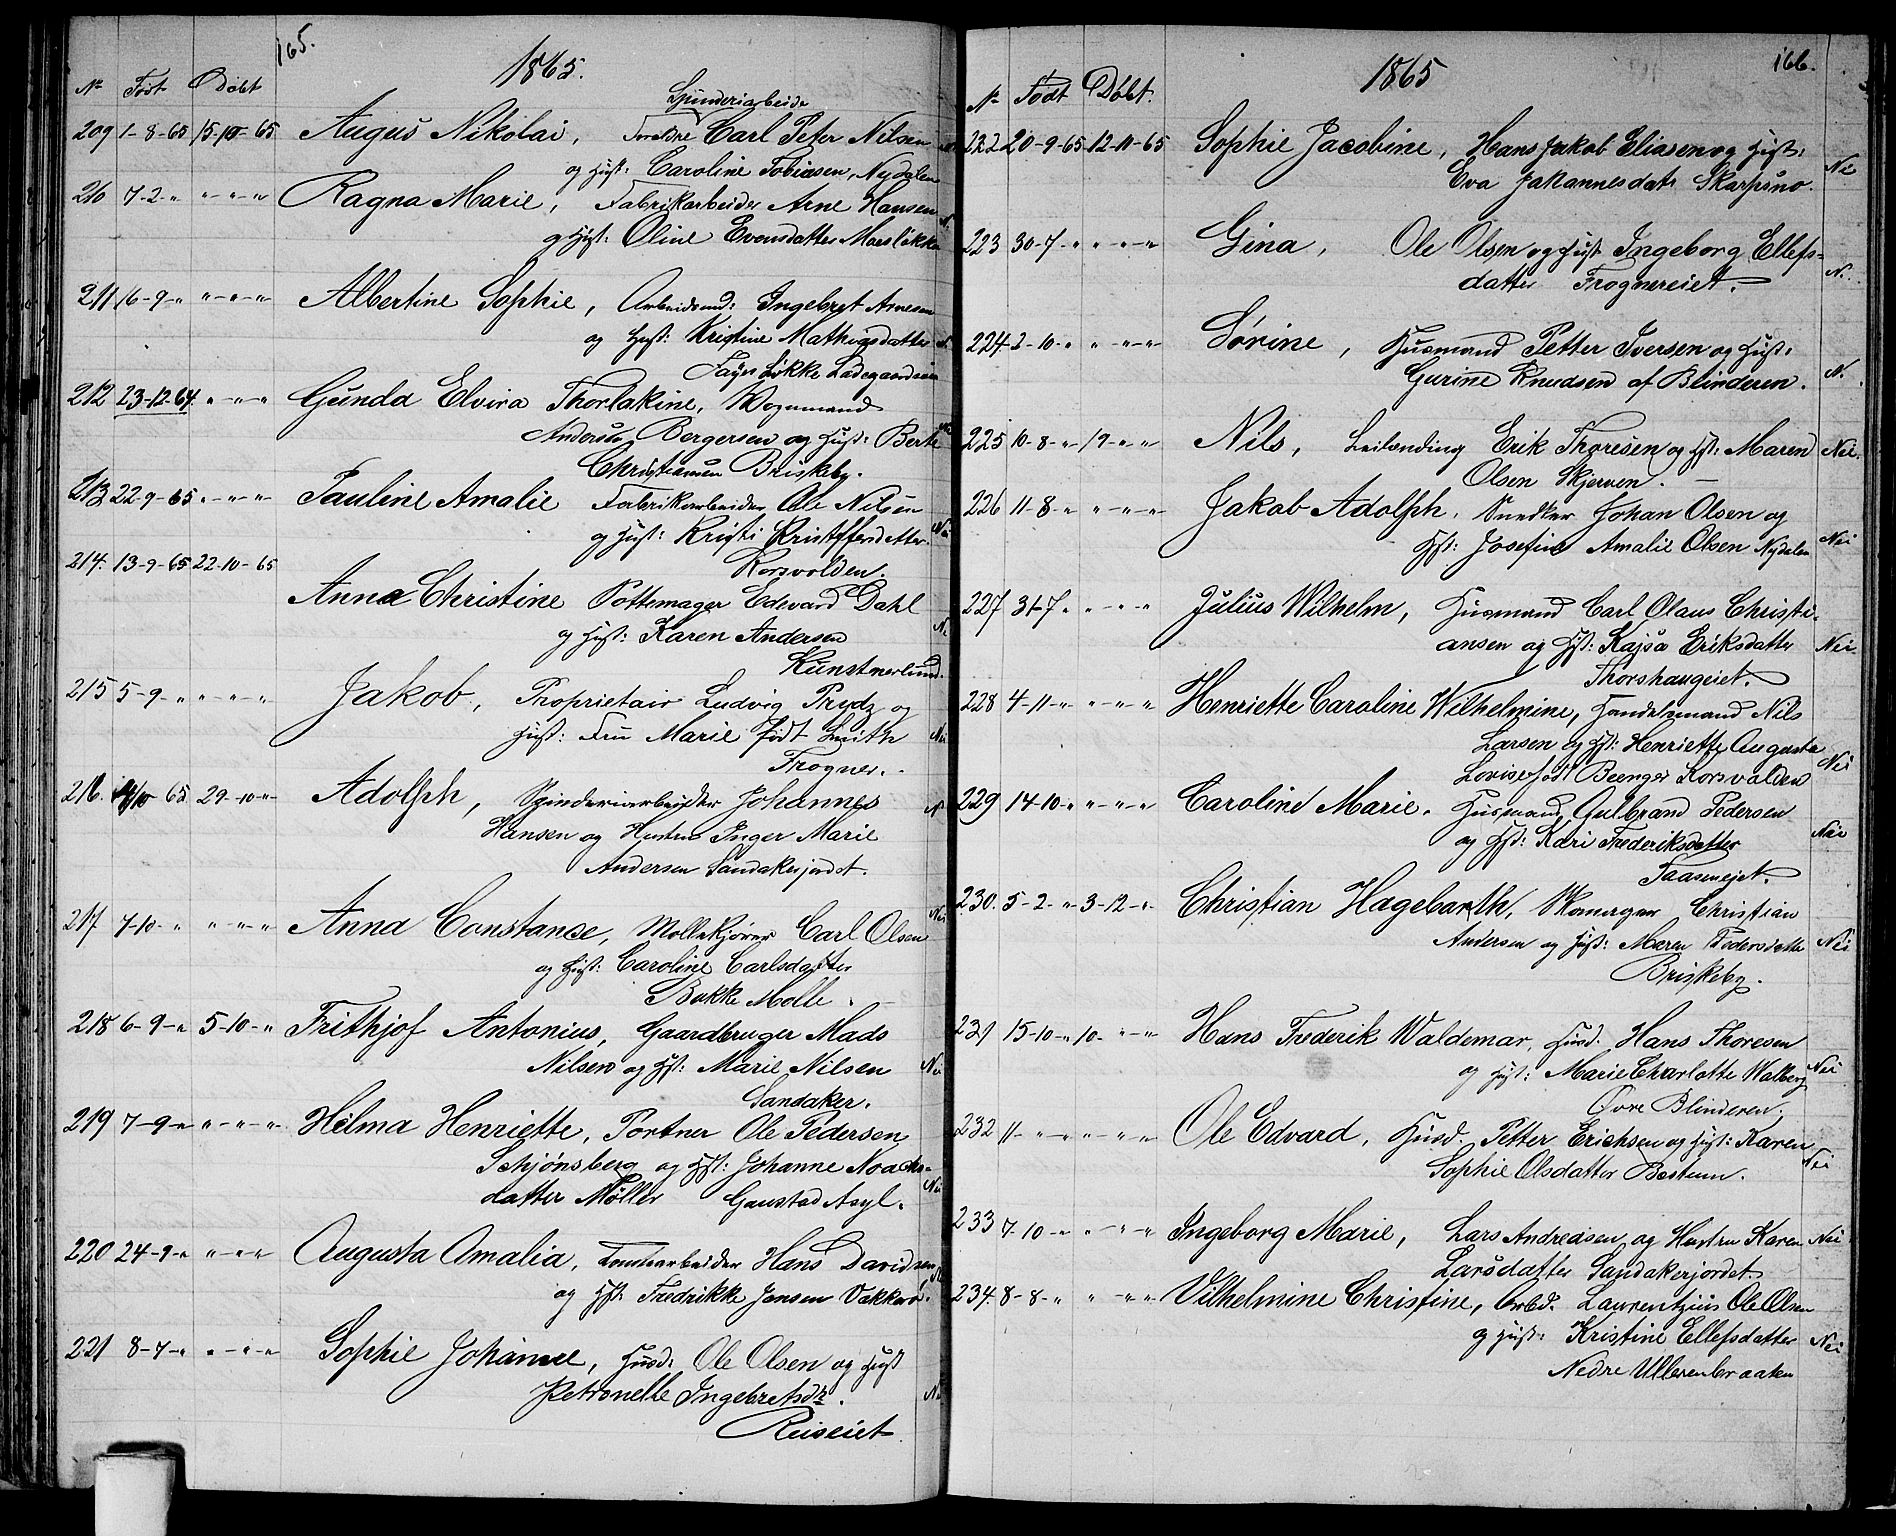 165.
1865.
No Født Døbt
Spinderiarbeide
209 1-8-65 15-10-65 Augus Nikolai, Forældre Carl Peter Nilsen
og Hust: Caroline Tobiasen, Nydalen
210 7-2-" "-"-" Ragna Marie, Fabrikarbeider Arne Hansen
og Hust: Oline Evensdatter Marsløkke
211 16-9-" "-"-" Albertine Sophie, Arbeidsmd: Ingebret Arnesen
og Hust: Kristine Mathiasdatter
Jays Løkke Ladegaardsøen
212 23-12-64 "-"-" Gunda Elvira Thorlakine, Vognmand
Anders Bergersen og Hust: Berte Nei
Christiansen Briskeby.
213 22-9-65 "-"-" Pauline Amalie Fabrikarbeider Ole Nilsen
og Hust: Kristi Kristoffersdatter Nei
Korsvolden.
214. 13-9-65 22-10-65
Anna Christine Pottemager Edevard Dahl
og Hust: Karen Andersen
Kunstnerlund.
215 5-9-" "-"-" Jakob, Proprietair Ludvig Prydz og
Hust: Fru Marie født Smith Nei
Frogner.
216. 65 29-10-" Adolph, Spinderiarbeider Johannes
Hansen og Hustru Inger Marie
Andersen Sandakerjordet.
217 7-10-" "-"-" Anna Constance, Møllekjører Carl Olsen Nei
og Hust: Caroline Carlsdatter
Bakke Mølle.
218 6-9-" 5-10-" Frithjof Antonius, Gaardbruger Mads
Nilsen og Hst: Marie Nilsen Nei
Sandaker.
219 7-9-" "-"-" Hilma Henriette, Portner Ole Pedersen
Schjønsberg og Hst: Johanne Noachs-
datter Møller Gaustad Asyl. Nei
220 24-9-" "-"-" Augusta Amalia, Tomtearbeider Hans Davidsen
og Hst: Fredrikke Jensen Vækkerø.
221 8-7-" "-"-" Sophie Johanne, Husd: Ole Olsen og Hust
Petronelle Ingebretsdr.
Riiseiet
166.
1865
No Født Døbt.
222 20-9-65 12-11-65 Sophie Jacobine, Hans Jakob Eliasen og Hust:
Eva Johannesdatr Skarpsno. Nei
223 30-7-" "-"-" Gina, Ole Olsen og Hust Ingeborg Ellefs-
datter Frognereiet. N.
224. 2-10-" "-"-" Sørine, Husmand Petter Iversen og Hust:
Gurine Knudsen af Blinderen. N.
225 10-8-" 19-"-" Nils, Leilænding Erik Thoresen og Hst: Maren Nei.
Olsen Skjerven.
226 11-8-" "-"-" Jakob Adolph. Snedker Johan Olsen og
Hst: Josefine Amalie Olsen Nydalen Nei
227 31-7-" "-"-" Julius Wilhelm, Husmand Carl Olaus Christi-
ansen og Hst: Kajsa Eriksdatter Nei
Thorshaugeiet.
228 4-11-" "-"-" Henriette Caroline Wilhelmine, Handelsmand Nils
Larsen og Hst: Henriette Augusta
Lovise født Beenger Korsvolden Nei
229 14-10-" "-"-" Caroline Marie. Husmand Gulbrand Pedersen
og Hst: Kari Frederiksdatter Nei
Taasenejet.
230. 5-2-" 3-12-" Christian Hagebarth, Skomager Christian
Andersen og Hust: Maren Pedersdatter Nei
Briskeby.
231 15-10-" 10-"-" Hans Frederik Waldemar, Husd. Hans Thoresen
og Hust: Marie Charlotte Walberg Nei
Øvre Blinderen.
232 11-"-" "-"-" Ole Edvard, Husd. Petter Erichsen og Hust: Karen
Sophie Olsdatter Bestum. Nei
233 7-10-" "-"-" Ingeborg Marie, Lars Andreasen og Hustru Karen Nei
Larsdatter Sandakerjordet
234. 8-8-" "-"-" Vilhelmine Christine, Arbd. Laurentzius Ole Olsen
og Hust: Kristine Ellefsdatter Nei
Nedre Ullerenbraaten